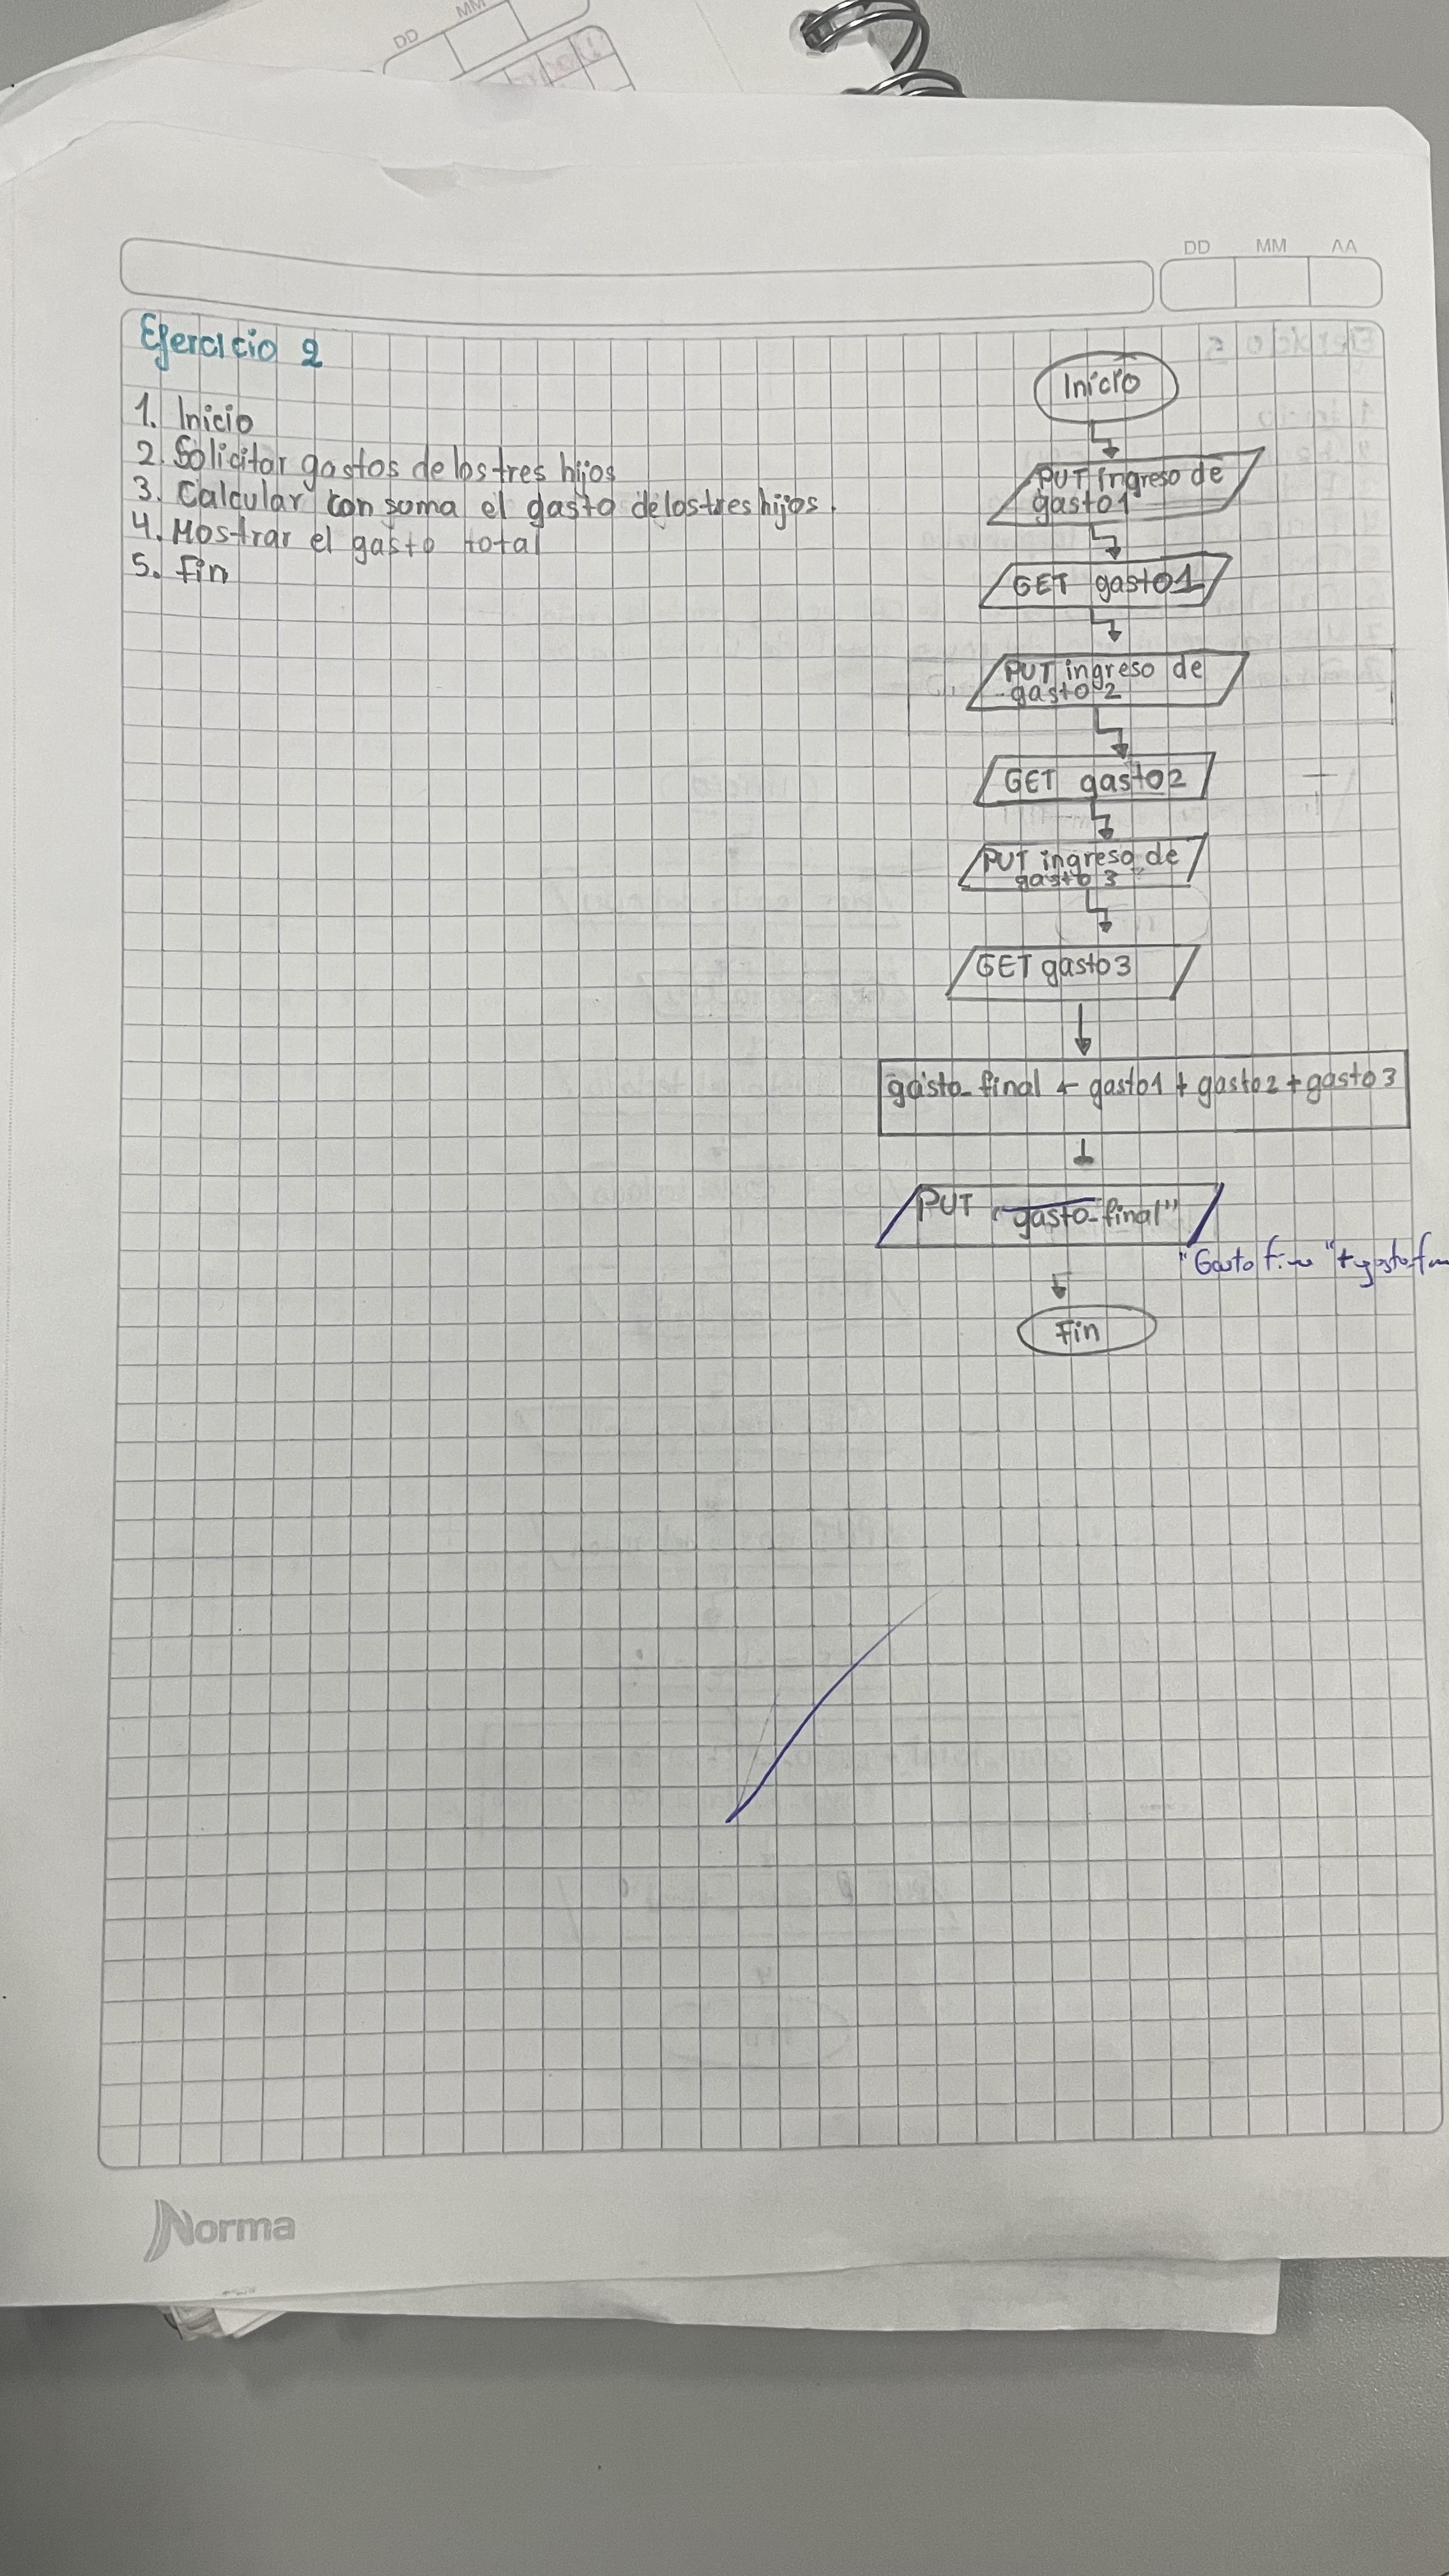 DD MM
DD MM AA
Ejercicio 2
1. Inicio
2. Solicitar gastos de los tres hijos
3. Calcular con suma el gasto de los tres hijos.
4. Mostrar el gasto total
5. Fin
Inicio
PUT ingreso de
gasto1
GET gasto1
PUT ingreso de
gasto 2
GET gasto2
PUT ingreso de
gasto 3
GET gasto3
gasto_final ← gasto1 + gasto2 + gasto3
PUT "gasto_final"
"Gasto
Fin
Norma